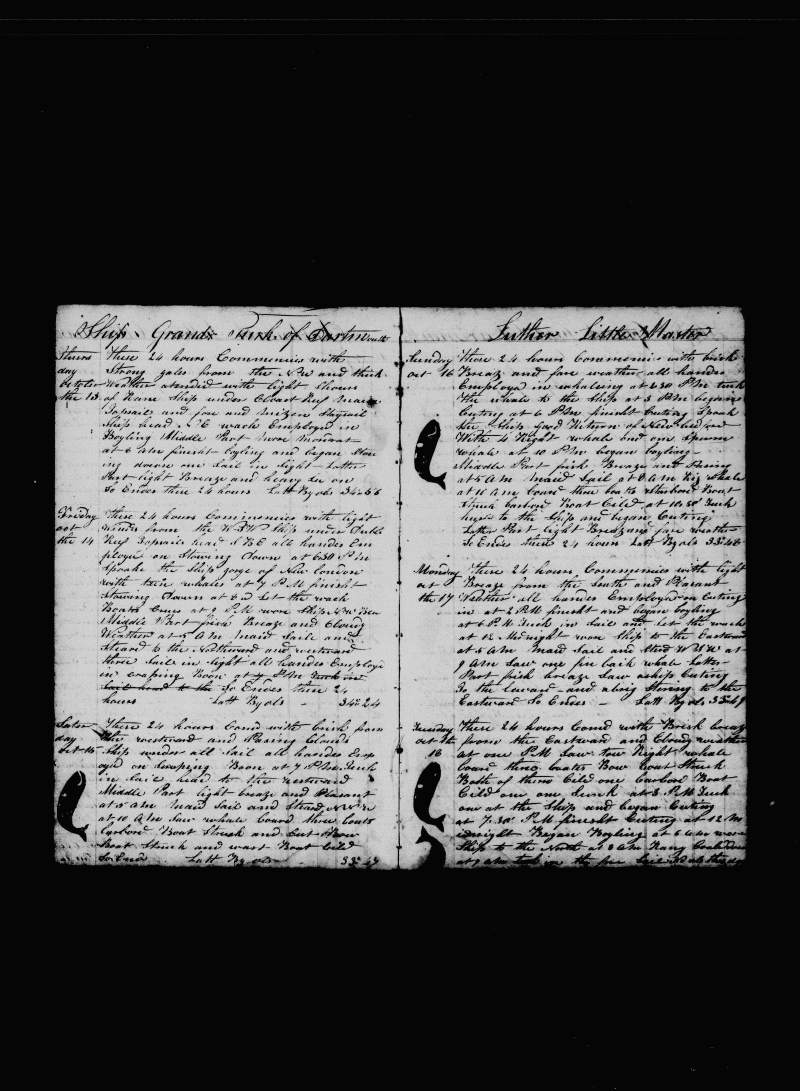 Ship Grand Turk of Dartmouth
Thurs These 24 hours Commences with
day Strong gales from the N W and thick
october Weather atended with light Shours
the 13 of Rane Ship under Close Reef Main
Topsail and fore and Mizen Staysail
Ship head N E wach Employd in
Boyling Middle Part More Mordrat
at 6 AM finisht Boyling and began Stow
ing down one Sail in Sight Latter
Part light Breaze and heavy Sea on
So Endes these 24 hours Latt By ols 34
Friday These 24 hours Commences with light
oct winds from the W S W Ship under Dubble
the 14 Reef Topsails head S B E all handes Em
ployd on Stowing down at 630 PM
Spoake the Ship of New london
with whales at 7 PM finisht
Stowing down at 8 Let the wach
Boats Crues at 9 PM wore Ship
Middle Part fresh Breaze and Cloudy
Weather at 5 AM Maid Saile and
Steard to the Northward and westward
three Sail in Sight all handes Employd
in Scraping Boon at PM
So Endes these 24
hours Latt By ols - 34 24
Satur These 24 hours Comd with brisk from
day the westward and Pasing Clouds
oct 15 Ship under all Sail all handes Emp
oyd on Scraping Boon at 7 PM Tuck
in Sail head to the westward
Middle Part light breaze and Plasant
at 5 AM Maid Sail and Steard
at 10 AM Saw whale Loard three boats
Larbord Boat Struck and Cut
Boat Struck and wast Boat Cild
So Ends Latt By ols - 33 49
Luther Little Master
Sunday These 24 hours Commencis with brisk
oct 16 Breaz and fare weather all handes
Employd in whaleing at 230 PM tuck
the whale to the Ship at 3 PM began
Cuting at 6 PM finisht Cuting Spoak
the Ship Good Return of New bedford
With 4 Right whale and one Sperm
whale at 10 PM began boyling
Middle Part fresh Breaze and
at 5 AM Maid Sail at 8 AM Rig whale
at 10 AM Loard three boats Starbord Boat
Struck Larbord Boat Cild at 1030 Tuck
to the Ship and began Cuting
Latter Part light Breaz and fare weather
So Ends these 24 hours Latt By ols 33 48
Monday These 24 hours Commencis with light
oct Breaze from the South and Plasant
the 17 Weather all handes Employd on Cuting
in at 2 PM finisht and began boyling
at 6 PM Tuck in Sail and let the wach
at 12 Midnight wore Ship to the Eastward
at 5 AM Maid Sail and Sterd at
9 AM Saw one fin back whale Latter
Part fresh breaze Saw a ship Cuting
To the leward and along Stering to the
Eastward So Endes - Latt By ols 33 49
Tuesday These 24 hours Comd with Brisk breaz
oct the from the Eastward and Cloudy weather
18 at one PM Saw tow Right whale
Loard three boates Bow boat Struck
Both of them Cild one Larbord Boat
Cild one one Sunk at 3 PM Tuck
one at the Ship and began Cuting
at 7.30 PM finisht Cuting at 12 M
idnight Began Boyling at 6 wore
Ship to the North at 8 AM
at 9 AM